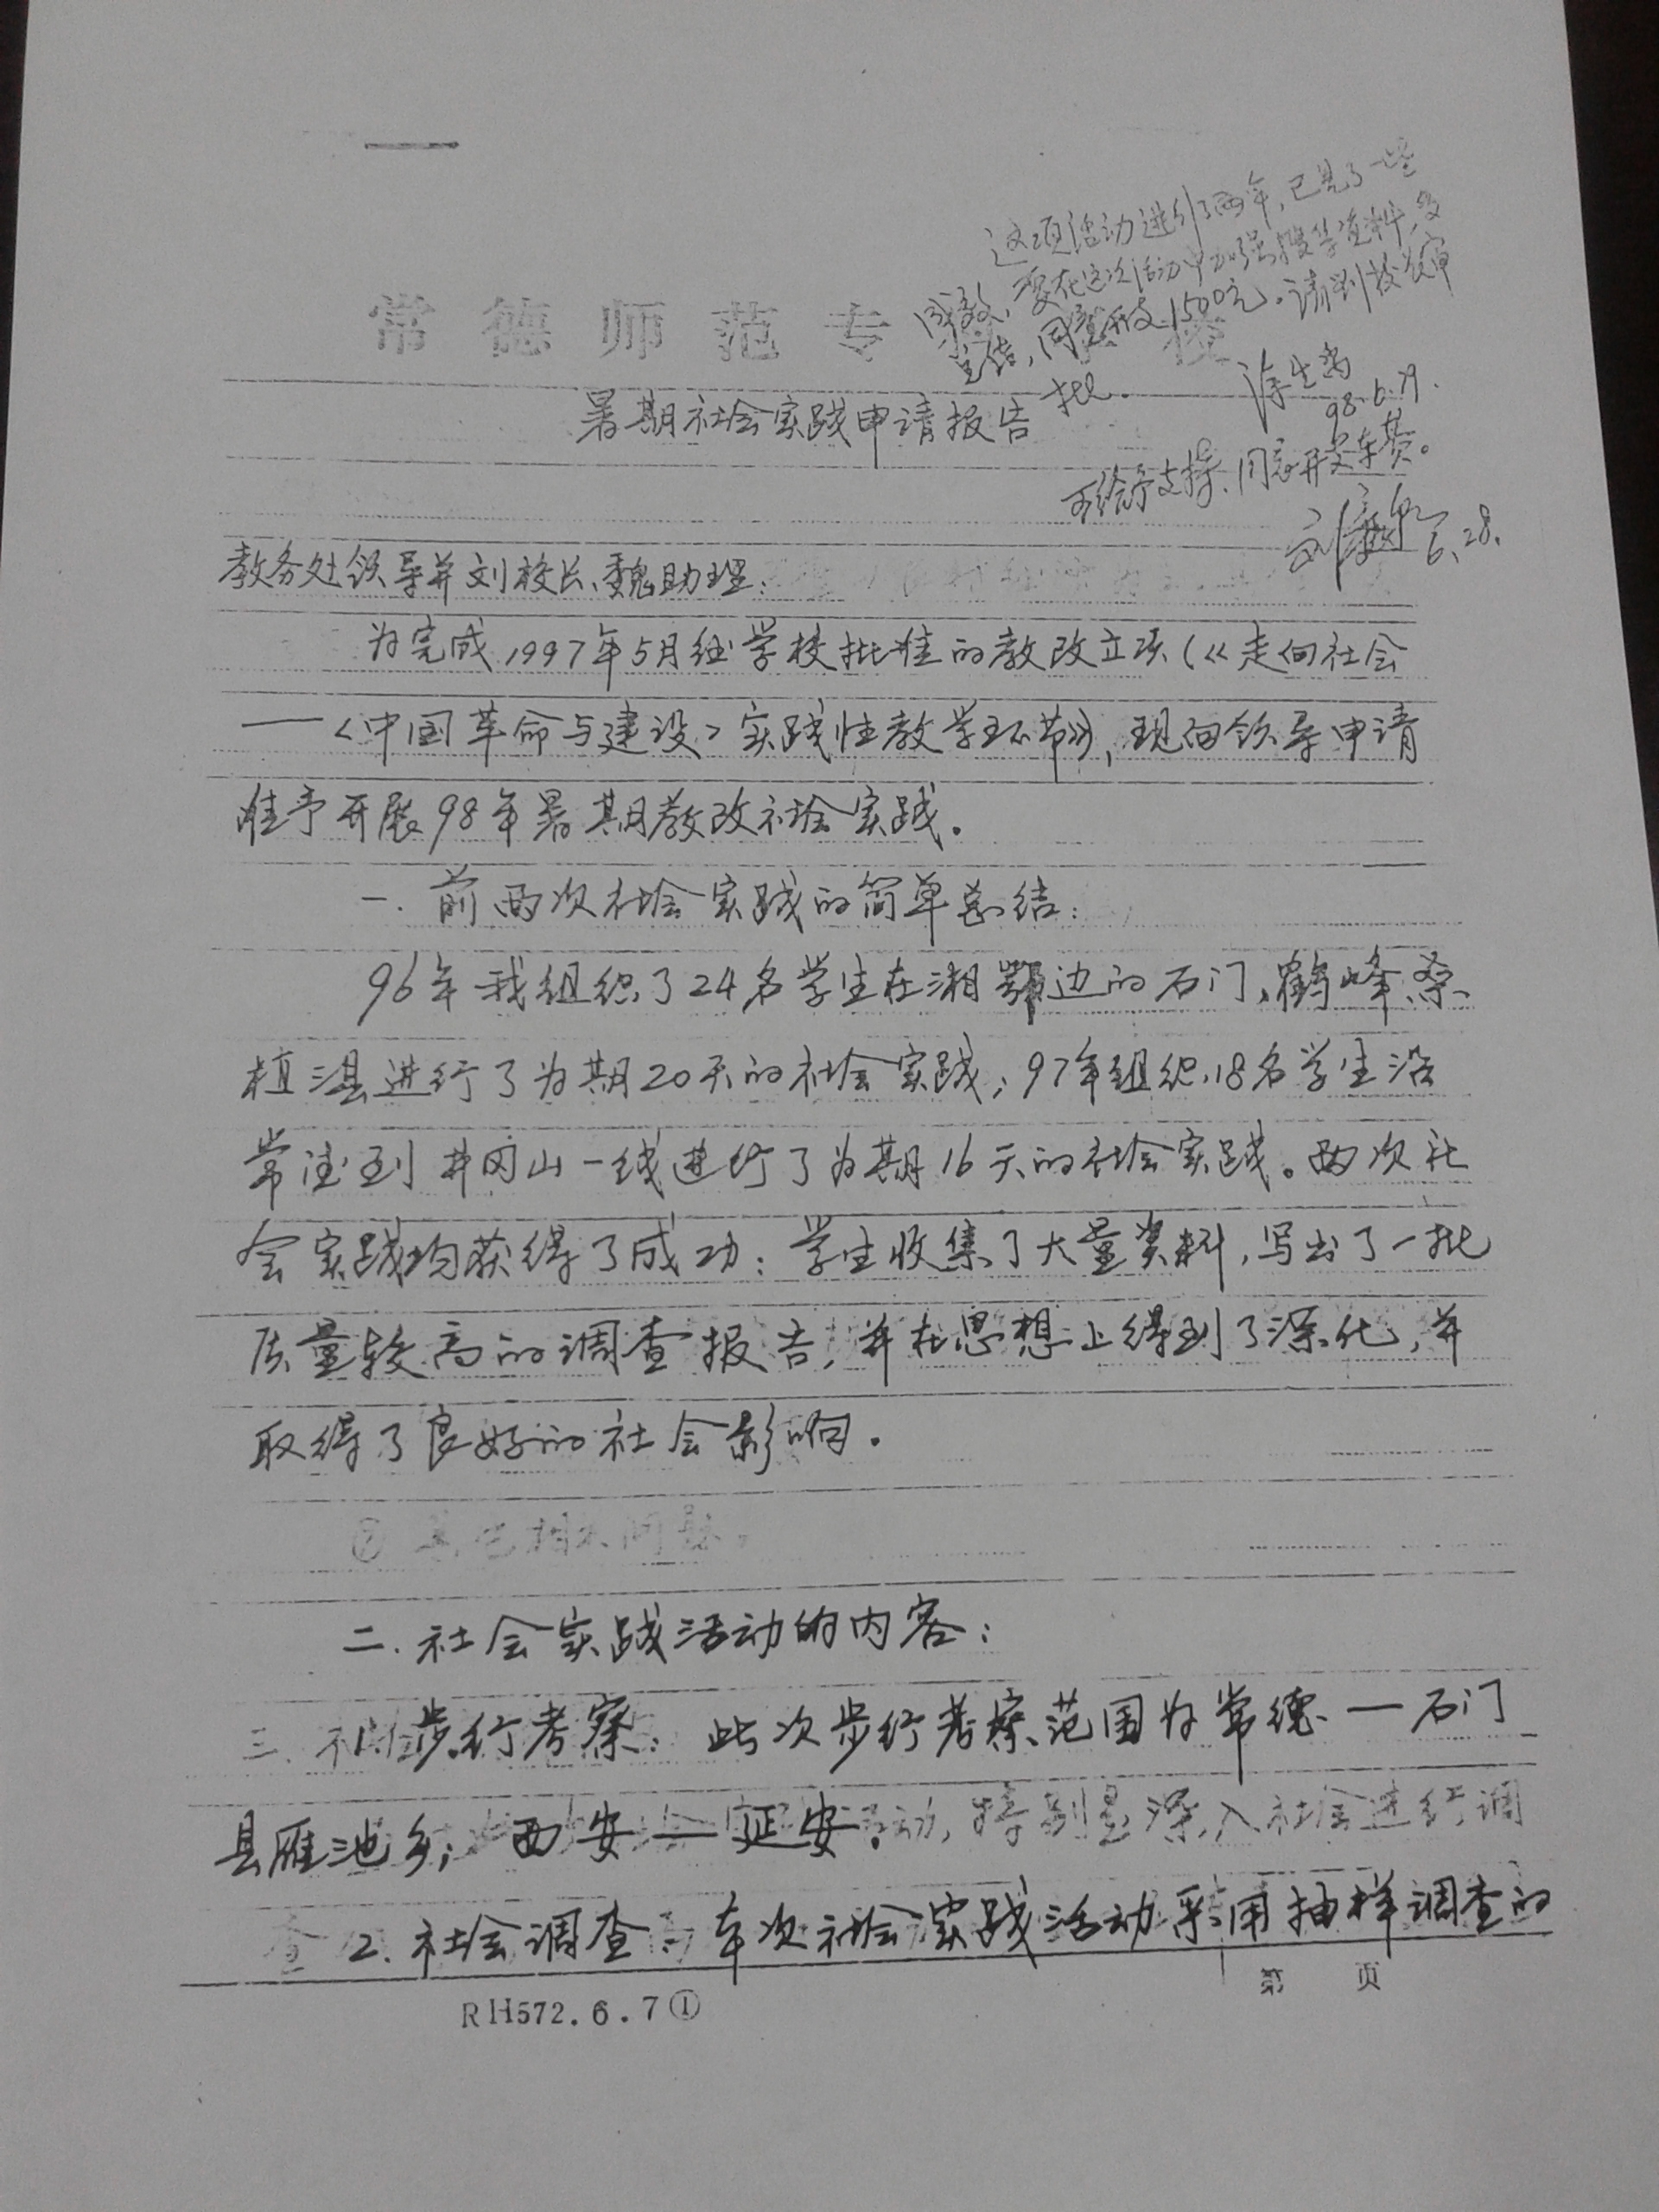 这项活动进行了两年,已见了一些
成效,要在这次活动中加强搜集资料,多
总结,同意开支1500元。请刘校长审
批.
涂生
98.6.29.
常德师范专 校
暑期社会实践申请报告
可给予支持、同意开支车费。
刘 6.28.
教务处领导并刘校长、魏助理:
为完成1997年5月经学校批准的教改立项(《走向社会
——〈中国革命与建设〉实践性教学环节》),现向领导申请
准予开展98年暑期教改社会实践。
一. 前两次社会实践的简单总结:
96年我组织了24名学生在湘鄂边的石门、鹤峰、桑
植三县进行了为期20天的社会实践;97年组织18名学生沿
常德到井冈山一线进行了为期16天的社会实践。两次社
会实践均获得了成功:学生收集了大量资料,写出了一批
质量较高的调查报告,并在思想上得到了深化,并
取得了良好的社会影响。
二. 社会实践活动的内容:
三. 步行考察: 此次步行考察范围为常德—石门
县雁池乡; 西安——延安. 动, 特别是深入社会进行调
查 2. 社会调查:本次社会实践活动采用抽样调查的
第 页
RH572.6.7①